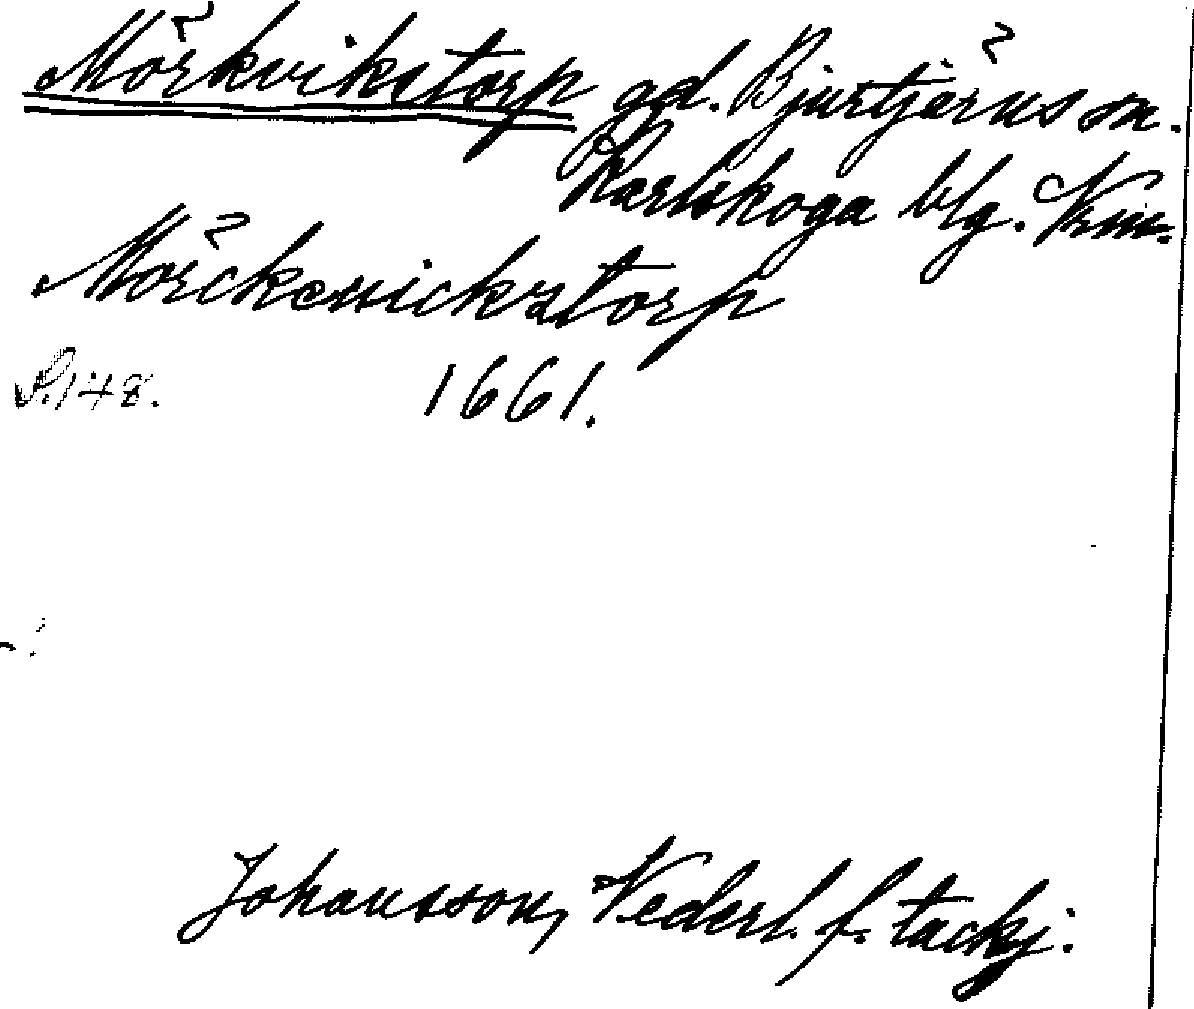 Mörkvikstorp gd. Bjurtjärns sn.
Karlskoga blg. Vrm.
Mörckewickztorp
S. 148. 1661.
Johansson, Nederl. f. tackj.